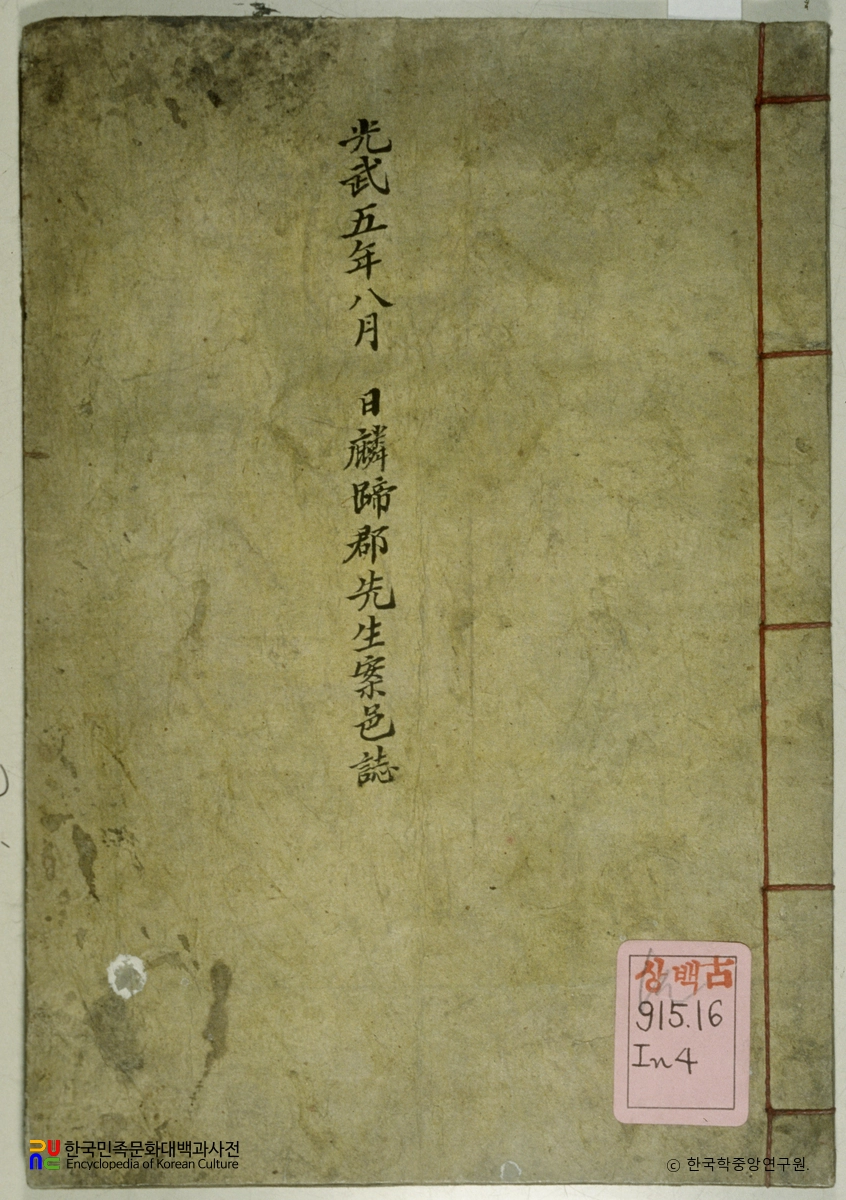 光武五年八月 日麟蹄郡先生案邑誌
상백古
915.16
In4
한국민족문화대백과사전
Encyclopedia of Korean Culture
© 한국학중앙연구원.